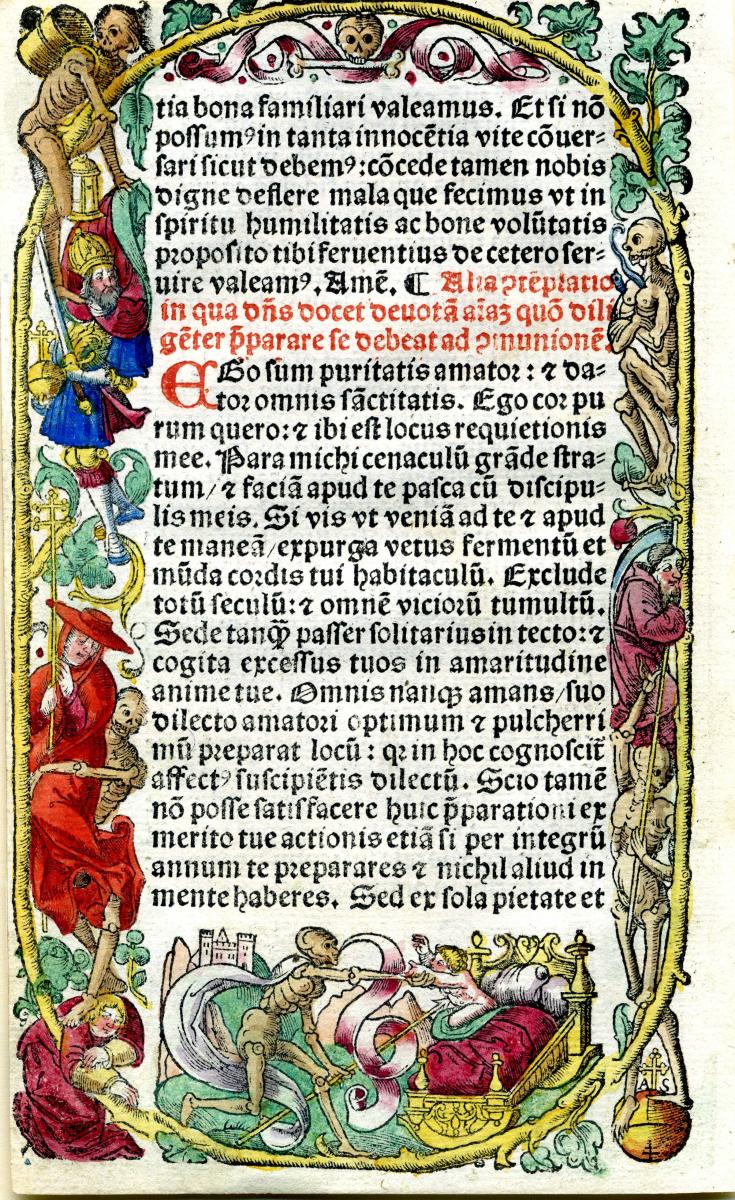 tia bona familiari valeamus. Et si nõ
possumꝰ in tanta innocẽtia vite cõuer⸗
sari sicut debemꝰ: cõcede tamen nobis
digne deflere mala que fecimus vt in
spiritu humilitatis ac bone volũtatis
proposito tibi feruentius de cetero ser⸗
uire valeamꝰ. Amẽ. ¶ Alia ꝯtẽplatio
in qua dñs docet deuotã aĩaꝫ quõ dili
gẽter p̃parare se debeat ad ꝯmunionẽ.
EGo sum puritatis amator: ⁊ da⸗
tor omnis sãctitatis. Ego cor pu
rum quero: ⁊ ibi est locus requietionis
mee. Para michi cenaculũ grãde stra⸗
tum/ ⁊ faciã apud te pasca cũ discipu⸗
lis meis. Si vis vt veniã ad te ⁊ apud
te maneã/ expurga vetus fermentũ et
mũda cordis tui habitaculũ. Exclude
totũ seculũ: ⁊ omnẽ viciorũ tumultũ.
Sede tanqꝫ̃ passer solitarius in tecto: ⁊
cogita excessus tuos in amaritudine
anime tue. Omnis nanqꝫ amans/ suo
dilecto amatori optimum ⁊ pulcherri
mũ preparat locũ: qꝛ in hoc cognoscit̃
affectꝰ suscipiẽtis dilectũ. Scio tamẽ
nõ posse satisfacere huic p̃parationi ex
merito tue actionis etiã si per integrũ
annum te preparares ⁊ nichil aliud in
mente haberes. Sed ex sola pietate et
A S